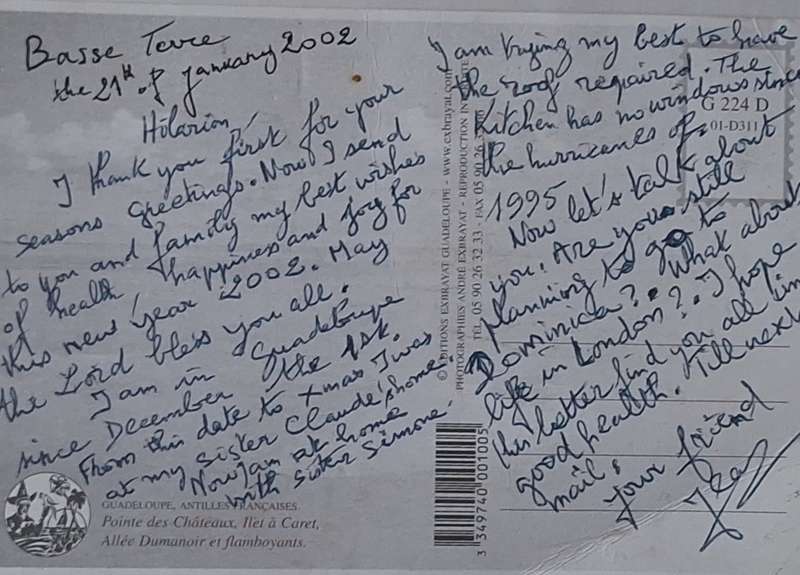 Basse Terre
the 21th of January 2002
Hilarion,
I thank you first for your
seasons greetings. Now I send
to you and family my best wishes
of health, happiness and joy for
this new year 2002. May
the Lord bless you all.
I am in Guadeloupe
since December the 1st.
From this date to Xmas I was
at my sister Claude's home.
Now I am at home
with sister Simone.
GUADELOUPE, ANTILLES FRANÇAISES
Pointe des Châteaux, Ilet à Caret,
Allée Dumanoir et flamboyants.
© EDITIONS EXBRAYAT GUADELOUPE - www.exbrayat.com
PHOTOGRAPHIES ANDRÉ EXBRAYAT - REPRODUCTION INTERDITE
TÉL. 05 90 26 32 33 - FAX 05 90 26
3 349740 001005
G 224 D
01-D311
I am trying my best to have
the roof repaired. The
Kitchen has no windows since
the hurricanes of
1995.
Now let's talk about
you. Are you still
planning to go to
Dominica? What about
life in London? I hope
this letter find you all in
good health. Till next
mail.
Your friend